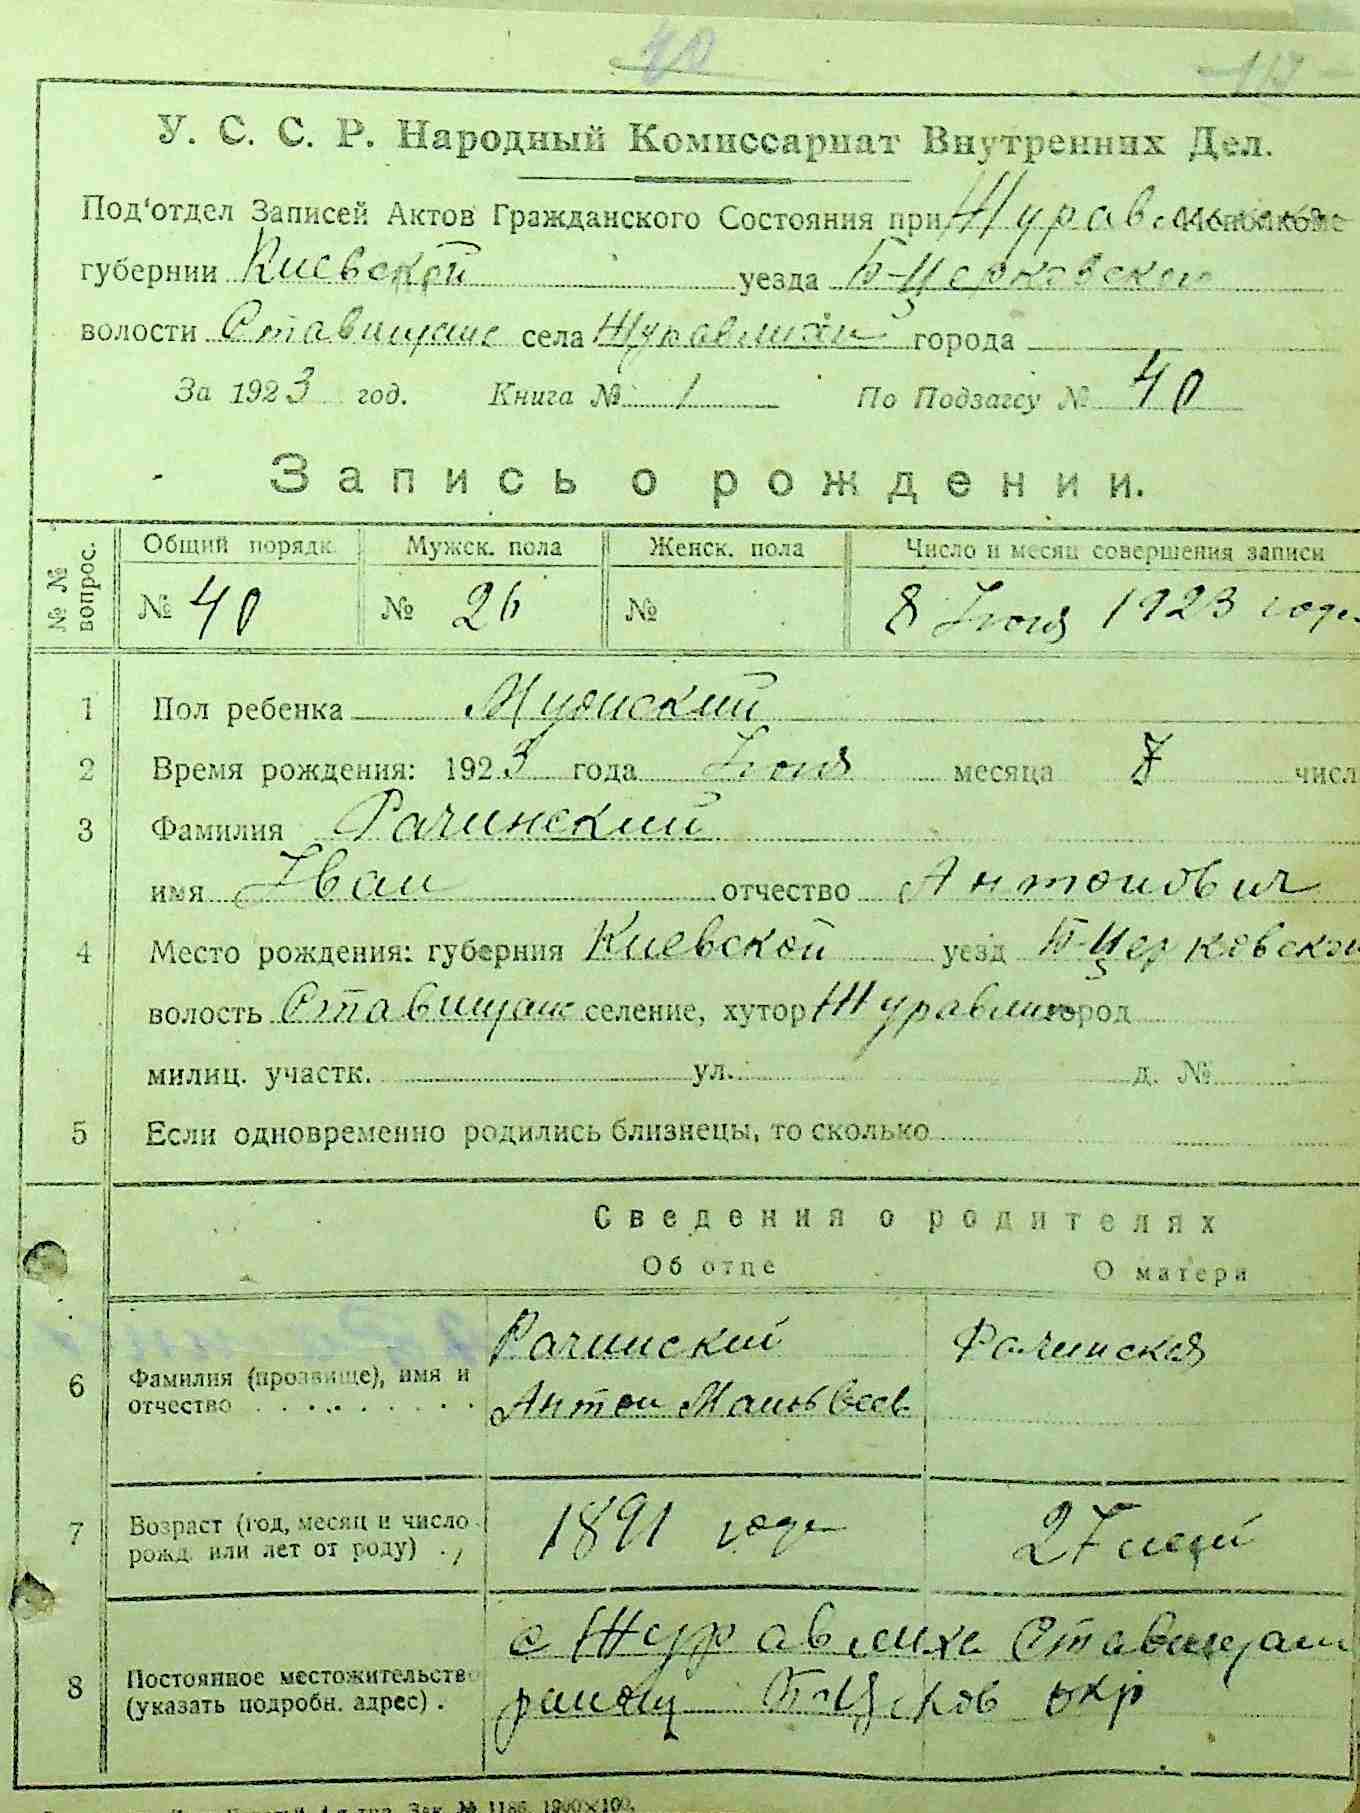 40
У. С. С. Р. Народный Комиссариат Внутренних Дел.
Под'отдел Записей Актов Гражданского Состояния при Журавл
губернии Киевской уезда Б-Церковской
волости Ставищанс села Журавлихи города
За 1923 год. Книга № 1 По Подзагсу № 40
Запись о рождении.
№ № вопрос. Общий порядк. Мужск. пола Женск. пола Число и месяц совершения записи
№ 40 № 26 № 8 Июня 1923 года
1 Пол ребенка Мужский
2 Время рождения: 1923 года Июня месяца 7 числ
3 Фамилия Рачинский
имя Иван отчество Антонович
4 Место рождения: губерния Киевской уезд Б-Церковской
волость Ставищанс селение, хутор Журавлих город
милиц. участк. ул. д. №
5 Если одновременно родились близнецы, то сколько
Сведения о родителях
Об отце О матери
6 Фамилия (прозвище), имя и отчество Рачинский Антон Матвеев Рачинская
7 Возраст (год, месяц и число рожд. или лет от роду) 1891 года 27 лет
8 Постоянное местожительство (указать подробн. адрес) с Журавлиха Ставищан
району Б-Црков окр
Зак. № 1186 1900×100.